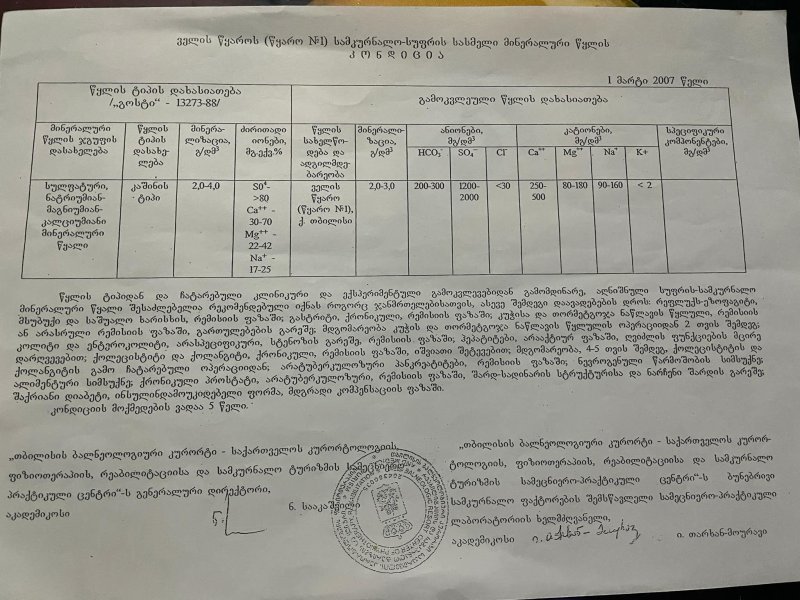 ველის წყაროს (წყარო №1) სამკურნალო-სუფრის სასმელი მინერალური წყლის
კ ო ნ დ ი ც ი ა
1 მარტი 2007 წელი
წყლის ტიპის დახასიათება
/„გოსტი“ - 13273-88/
გამოკვლეული წყლის დახასიათება
მინერალური წყლის ჯგუფის დასახელება
წყლის ტიპის დასახე-ლება
მინერა-ლიზაცია, გ/დმ³
ძირითადი იონები, მგ.ექვ.%
წყლის სახელწო-დება და ადგილმდე-ბარეობა
მინერალი-ზაცია, გ/დმ³
ანიონები, მგ/დმ³
კატიონები, მგ/დმ³
სპეციფიკური კომპონენტები, მგ/დმ³
HCO₃⁻ SO₄⁻⁻ Cl⁻ Ca⁺⁺ Mg⁺⁺ Na⁺ K+
სულფატური, ნატრიუმიან-მაგნიუმიან-კალციუმიანი მინერალური წყალი
კაშინის ტიპი
2,0-4,0
S0⁴- >80 Ca⁺⁺ - 30-70 Mg⁺⁺ - 22-42 Na⁺ - 17-25
ველის წყარო (წყარო №1), ქ. თბილისი
2,0-3,0
200-300
1200-2000
<30
250-500
80-180
90-160
< 2
წყლის ტიპიდან და ჩატარებული კლინიკური და ექსპერიმენტული გამოკვლევებიდან გამომდინარე, აღნიშნული სუფრის-სამკურნალო
მინერალური წყალი შესაძლებელია რეკომენდებული იქნას როგორც ჯანმრთელებისათვის, ასევე შემდეგი დაავადებების დროს: რეფლუქს-ეზოფაგიტი,
მსუბუქი და საშუალო ხარისხის, რემისიის ფაზაში; გასტრიტი, ქრონიკული, რემისიის ფაზაში; კუჭისა და თორმეტგოჯა ნაწლავის წყლული, რემისიის
ან არასრული რემისიის ფაზაში, გართულებების გარეშე; მდგომარეობა კუჭის და თორმეტგოჯა ნაწლავის წყლულის ოპერაციიდან 2 თვის შემდეგ;
კოლიტი და ენტეროკოლიტი, არასპეციფიკური, სტენოზის გარეშე, რემისიის ფაზაში; ჰეპატიტები, არააქტიურ ფაზაში, ღვიძლის ფუნქციების მცირე
დარღვევებით; ქოლეცისტიტი და ქოლანგიტი, ქრონიკული, რემისიის ფაზაში, იშვიათი შეტევებით; მდგომარეობა, 4-5 თვის შემდეგ, ქოლეცისტიტის და
ქოლანგიტის გამო ჩატარებული ოპერაციიდან; არატუბერკულოზური პანკრეატიტები, რემისიის ფაზაში; ნევროგენული წარმოშობის სიმსუქნე;
ალიმენტური სიმსუქნე; ქრონიკული პროსტატი, არატუბერკულოზური, რემისიის ფაზაში, შარდ-სადინარის სტრუქტურისა და ნარჩენი შარდის გარეშე;
შაქრიანი დიაბეტი, ინსულინდამოუკიდებელი ფორმა, მდგრადი კომპენსაციის ფაზაში.
კონდიციის მოქმედების ვადაა 5 წელი.
„თბილისის ბალნეოლოგიური კურორტი - საქართველოს კურორტოლოგიის,
ფიზიოთერაპიის, რეაბილიტაციისა და სამკურნალო ტურიზმის სამეცნიერო-
პრაქტიკული ცენტრი“-ს გენერალური დირექტორი,
აკადემიკოსი ნ. სააკაშვილი
„თბილისის ბალნეოლოგიური კურორტი - საქართველოს კურორ-
ტოლოგიის, ფიზიოთერაპიის, რეაბილიტაციისა და სამკურნალო
ტურიზმის სამეცნიერო-პრაქტიკული ცენტრი“-ს ბუნებრივი
სამკურნალო ფაქტორების შემსწავლელი სამეცნიერო-პრაქტიკული
ლაბორატორიის ხელმძღვანელი,
აკადემიკოსი ი. თარხან-მოურავი